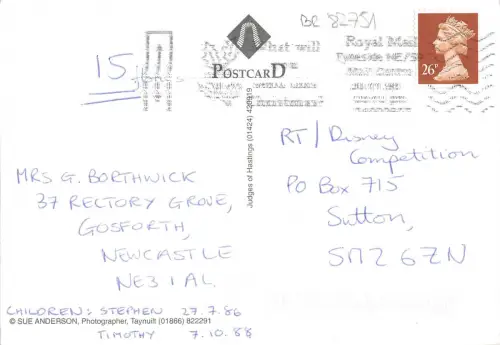 BR 82751
15
POSTCARD
what will
Royal Mail
Tyneside NE/SR
26P
Christmas?
Judges of Hastings (01424) 420919
RT/Disney
Competition
PO Box 715
Sutton,
SM2 6ZN
MRS G. BORTHWICK
37 RECTORY GROVE,
GOSFORTH,
NEWCASTLE
NE3 1AL.
CHILDREN: STEPHEN 27.7.86
© SUE ANDERSON, Photographer, Taynuilt (01866) 822291
TIMOTHY 7.10.88